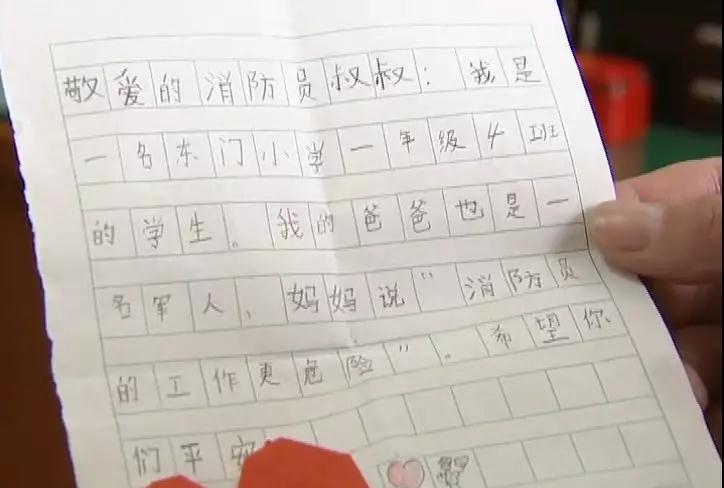 敬爱的消防员叔叔：我是
一名东门小学一年级4班
的学生。我的爸爸也是一
名军人、妈妈说“消防员
的工作更危险”。希望你
们平安